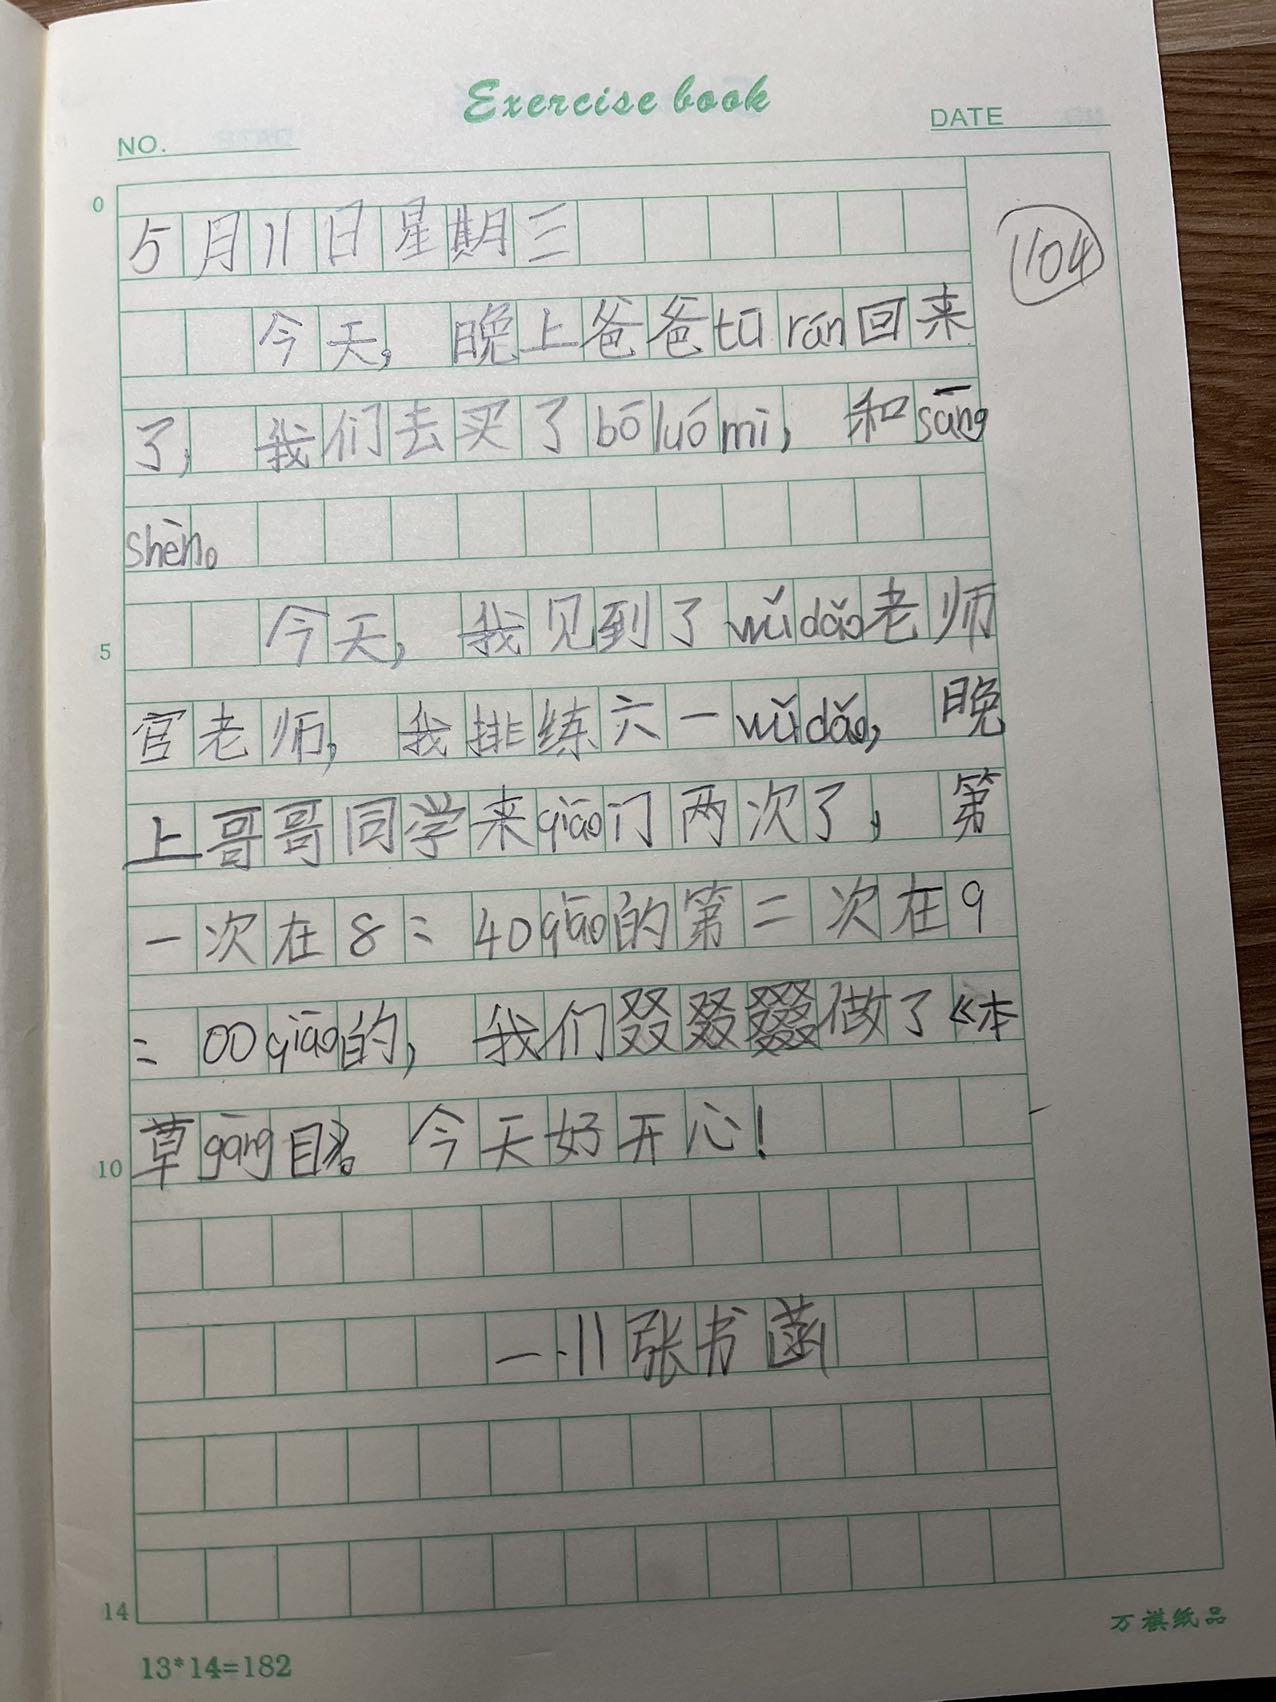 Exercise book
NO.
DATE
0
5月11日星期三
104
今天，晚上爸爸tū rán回来
了，我们去买了bō luó mì，和sāng
shèn。
今天，我见到了wǔ dǎo老师
5
官老师，我排练六一wǔ dǎo，晚
上哥哥同学来qiāo门两次了，第
一次在8：40qiāo的第二次在9
：00qiāo的，我们叕叕做了《本
草gāng目》。今天好开心！
10
一·11张书菡
14
13*14=182
万祺纸品